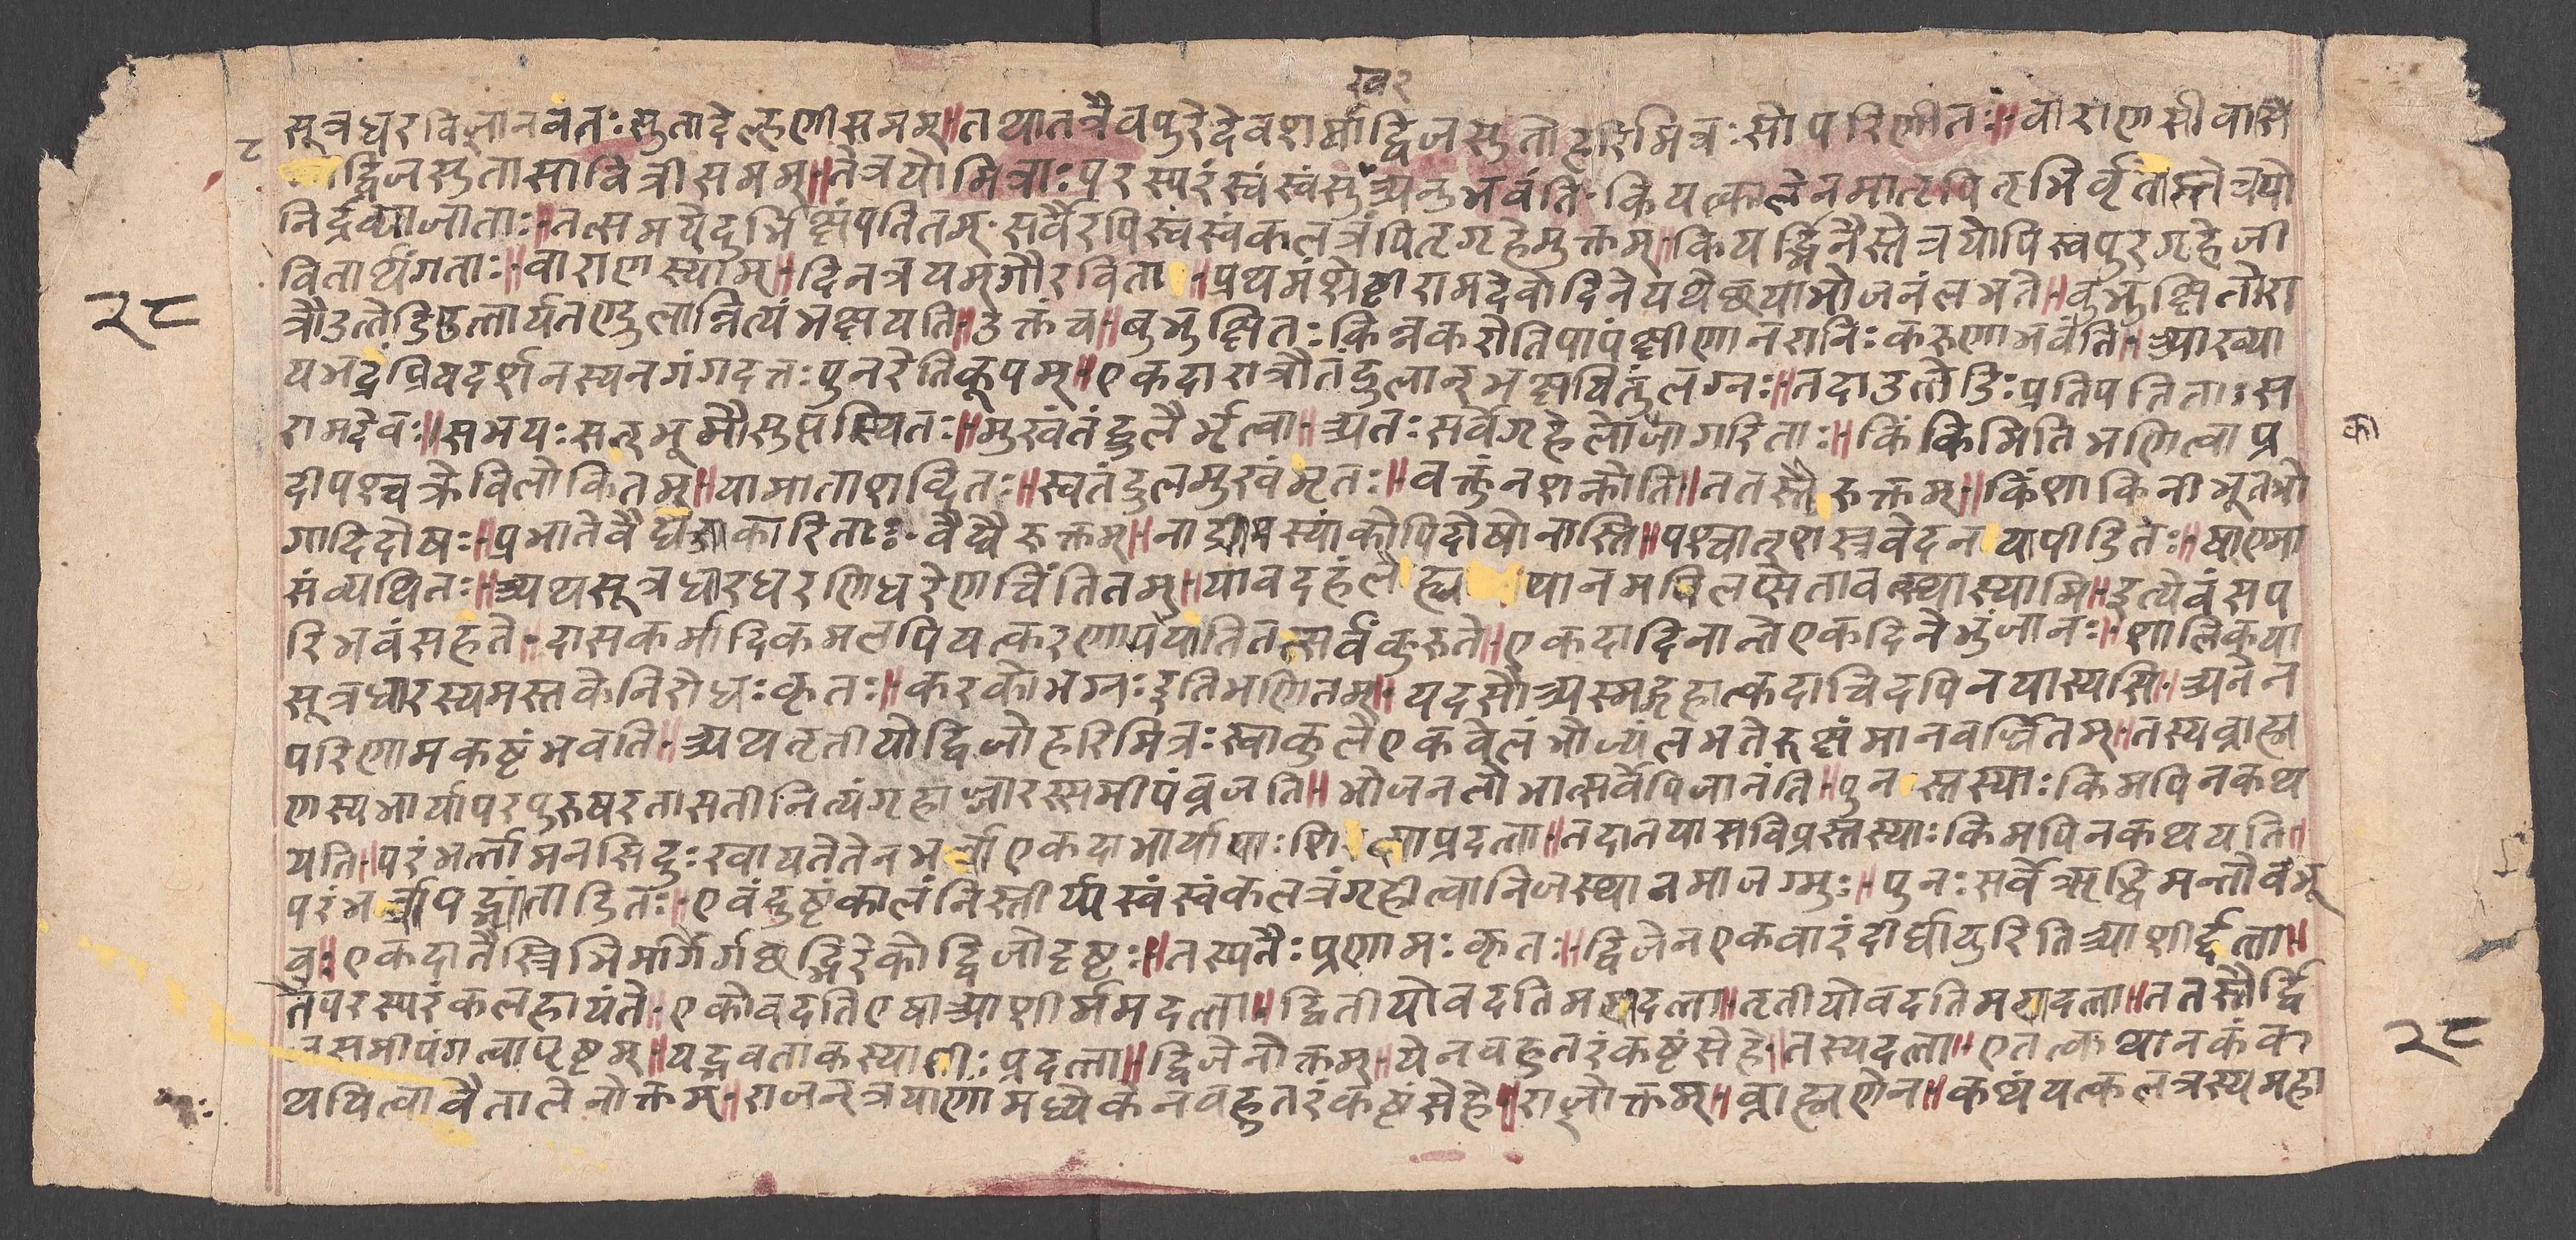 ख२
सूत्रधरविज्ञानवंतः सुतादेल्हणीसमम्॥ तथातत्रैवपुरेदेवशर्म्माद्विजसुतोहरिमित्रःसोपरिणीतः॥ वाराणसीवासि
द्विजसुतासावित्रीसमम्॥ तेत्रयोमित्राः परस्परंस्वंस्वंसुअनुभवंति॰ कियत्कालेनमातृपितृभिर्वृतास्तेत्रयो
निर्द्रव्याजाताः॥ तत्समयेदुर्भिक्षंपतितम्॰ सर्वैरपिस्वंस्वंकलत्रंपितृगृहेमुक्तम्॥ कियर्द्दिनैस्तेत्रयोपिस्वपुरगृहेजी
वितार्थंगताः॥ वाराणस्याम्॥ दिनत्रयम्गौरविता॥ प्रथमंश्रेष्ठीरामदेवोदिनेयथेछयाभोजनंलभते॥ बुभुक्षितोरा
त्रौउत्तेडिउत्तार्यतण्डुलान्नित्यंभक्षयति॥ उक्तंच॥ बुभुक्षितः किन्नकरोतिपापंक्षीणानरानिःकरुणाभवंति॥ आख्या
यभद्रेप्रियदर्शनस्यनगंगदत्तः पुनरेतिकूपम्॥ एकदारात्रौतंदुलान्भक्षयितुंलग्नः॥ तदाउत्तेडिः प्रतिपतिताः स
रामदेवः॥ सभयः सन्भूमौसुप्तस्थितः॥ मुखंतंदुलैर्भृत्वा॥ अतः सर्वेगृहेलोजागरिताः॥ किंकिमितिभणित्वाप्र
दीपश्चक्रेविलोकितम्॥ यामाताशब्दितः॥ स्वतंदुलमुखंभृतः॥ वक्तुंनशक्नोति॥ ततस्तैरुक्तम्॥ किंशाकिनीभूतप्रो
गादिदोषः॥ प्रभातेवैद्याकारिताः॰ वैद्यैरुक्तम्॥ नाड्यस्यांकोपिदोषोनास्ति॥ पश्चात्शस्त्रवेदनयापीडितः॥ षाण्मा
संव्यथितः॥ अथसूत्रधारधरणिधरेणचिंतितम्॥ यावदहंल पानमपिलप्सेतावत्स्थास्यामि॥ इत्येवंसप
रिभवंसहते॥ दासकर्मादिकमलपियत्करणापयातितत्सर्वंकुरुते॥ एकदादिनान्तेएकदिनेभुंजानः॥ शालिकया
सूत्रधारस्यमस्तकेनिरोधः कृतः॥ करकोभग्नः इतिभणितम्॥ यदसौअस्मद्गृहात्कदाचिदपिनयास्यसि॥ अनेन
परिणामकष्टंभवति॥ अथतृतीयोद्विजोहरिमित्रः स्वाकुलेएकवेलंभोज्यंलभतेरुक्षंमानवर्ज्जितम्॥ तस्यब्राह्म
णस्यभार्यापरपुरुषरतासतीनित्यंगृहाज्जारस्समीपंव्रजति॥ भोजनलोभात्सर्वेपिजानंति॥ पुनस्तस्याः किमपिनकथ
यति॥ परंभर्त्तामनसिदुःखायतेतेनभर्त्राएकदाभार्यायाः शिक्षाप्रदत्ता॥ तदातयासविप्रस्तस्याः किमपिनकथयति॥
परंभर्त्रापद्भ्यांताडितः॥ एवंदुष्टंकालंनिस्तीर्यस्वंस्वंकलत्रंगृहीत्वानिजस्थानमाजग्मुः॥ पुनः सर्वेऋद्धिमन्तोबभू
वुः॥ एकदातैस्त्रिभिर्मार्गेर्गछद्भिरेकोद्विजोदृष्टः॥ तस्यतैः प्रणामः कृतः॥ द्विजेनएकवारंदीर्घायुरितिआशीर्द्दत्ता॥
तेपरस्परंकलहायंते॥ एकोवदतिएषाआशीर्ममदत्ता॥ द्वितीयोवदतिममदत्ता॥ तृतीयोवदतिममदत्ता॥ ततस्तैर्द्वि
जसमीपंगत्वापृष्टम्॥ यद्भवताकस्याशीः प्रदत्ता॥ द्विजेनोक्तम्॥ येनबहुतरंकष्टंसेहे॥ तस्यदत्ता॥ एतत्कथानकंक
थयित्वावैतालेनोक्तम्॥ राजन्त्रयाणांमध्येकेनबहुतरंकष्टंसेहे॥ राज्ञोक्तम्॥ ब्राह्मणेन॥ कथंयत्कलत्रस्यमहा
२८
२८